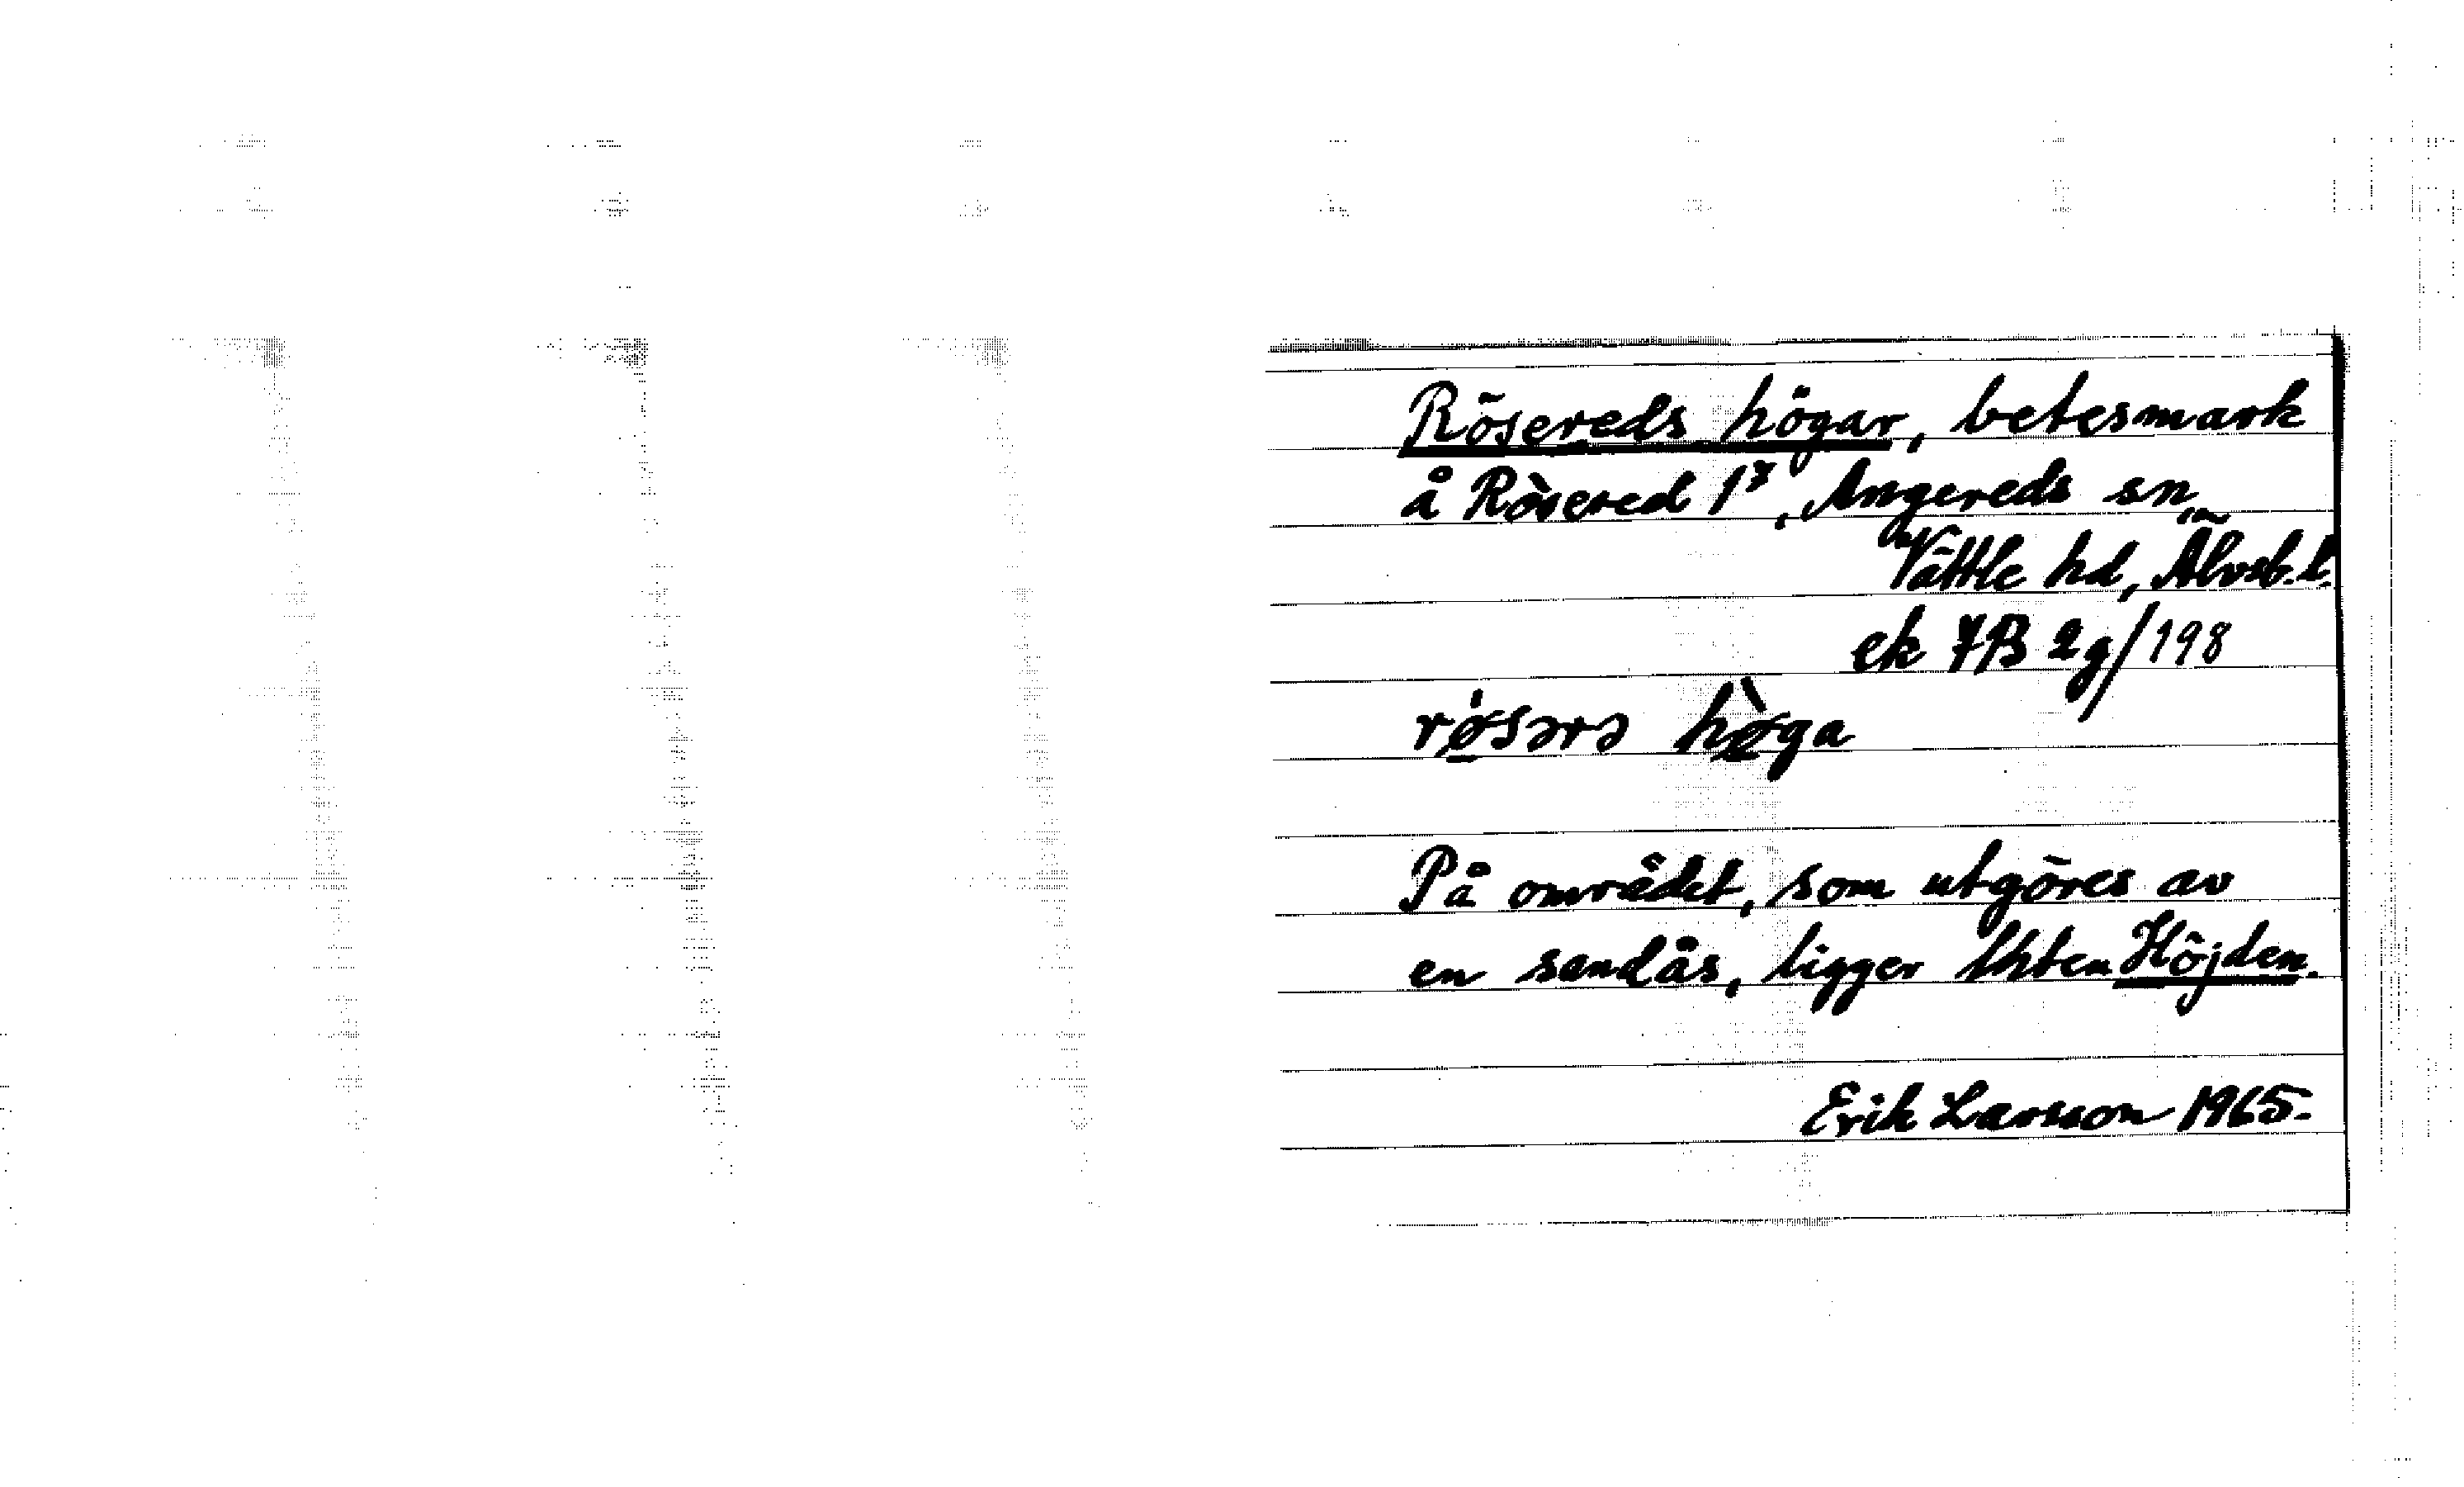 Rösereds högar, betesmark
å Rösered 1⁷, Angereds sn,
Vättle hd, Älvsb. l.
ek 7B 2g/198
rø̀sərs hø̀ga
På området, som utgöres av
en sandås, ligger lhten Höjden.
Erik Larsson 1965.